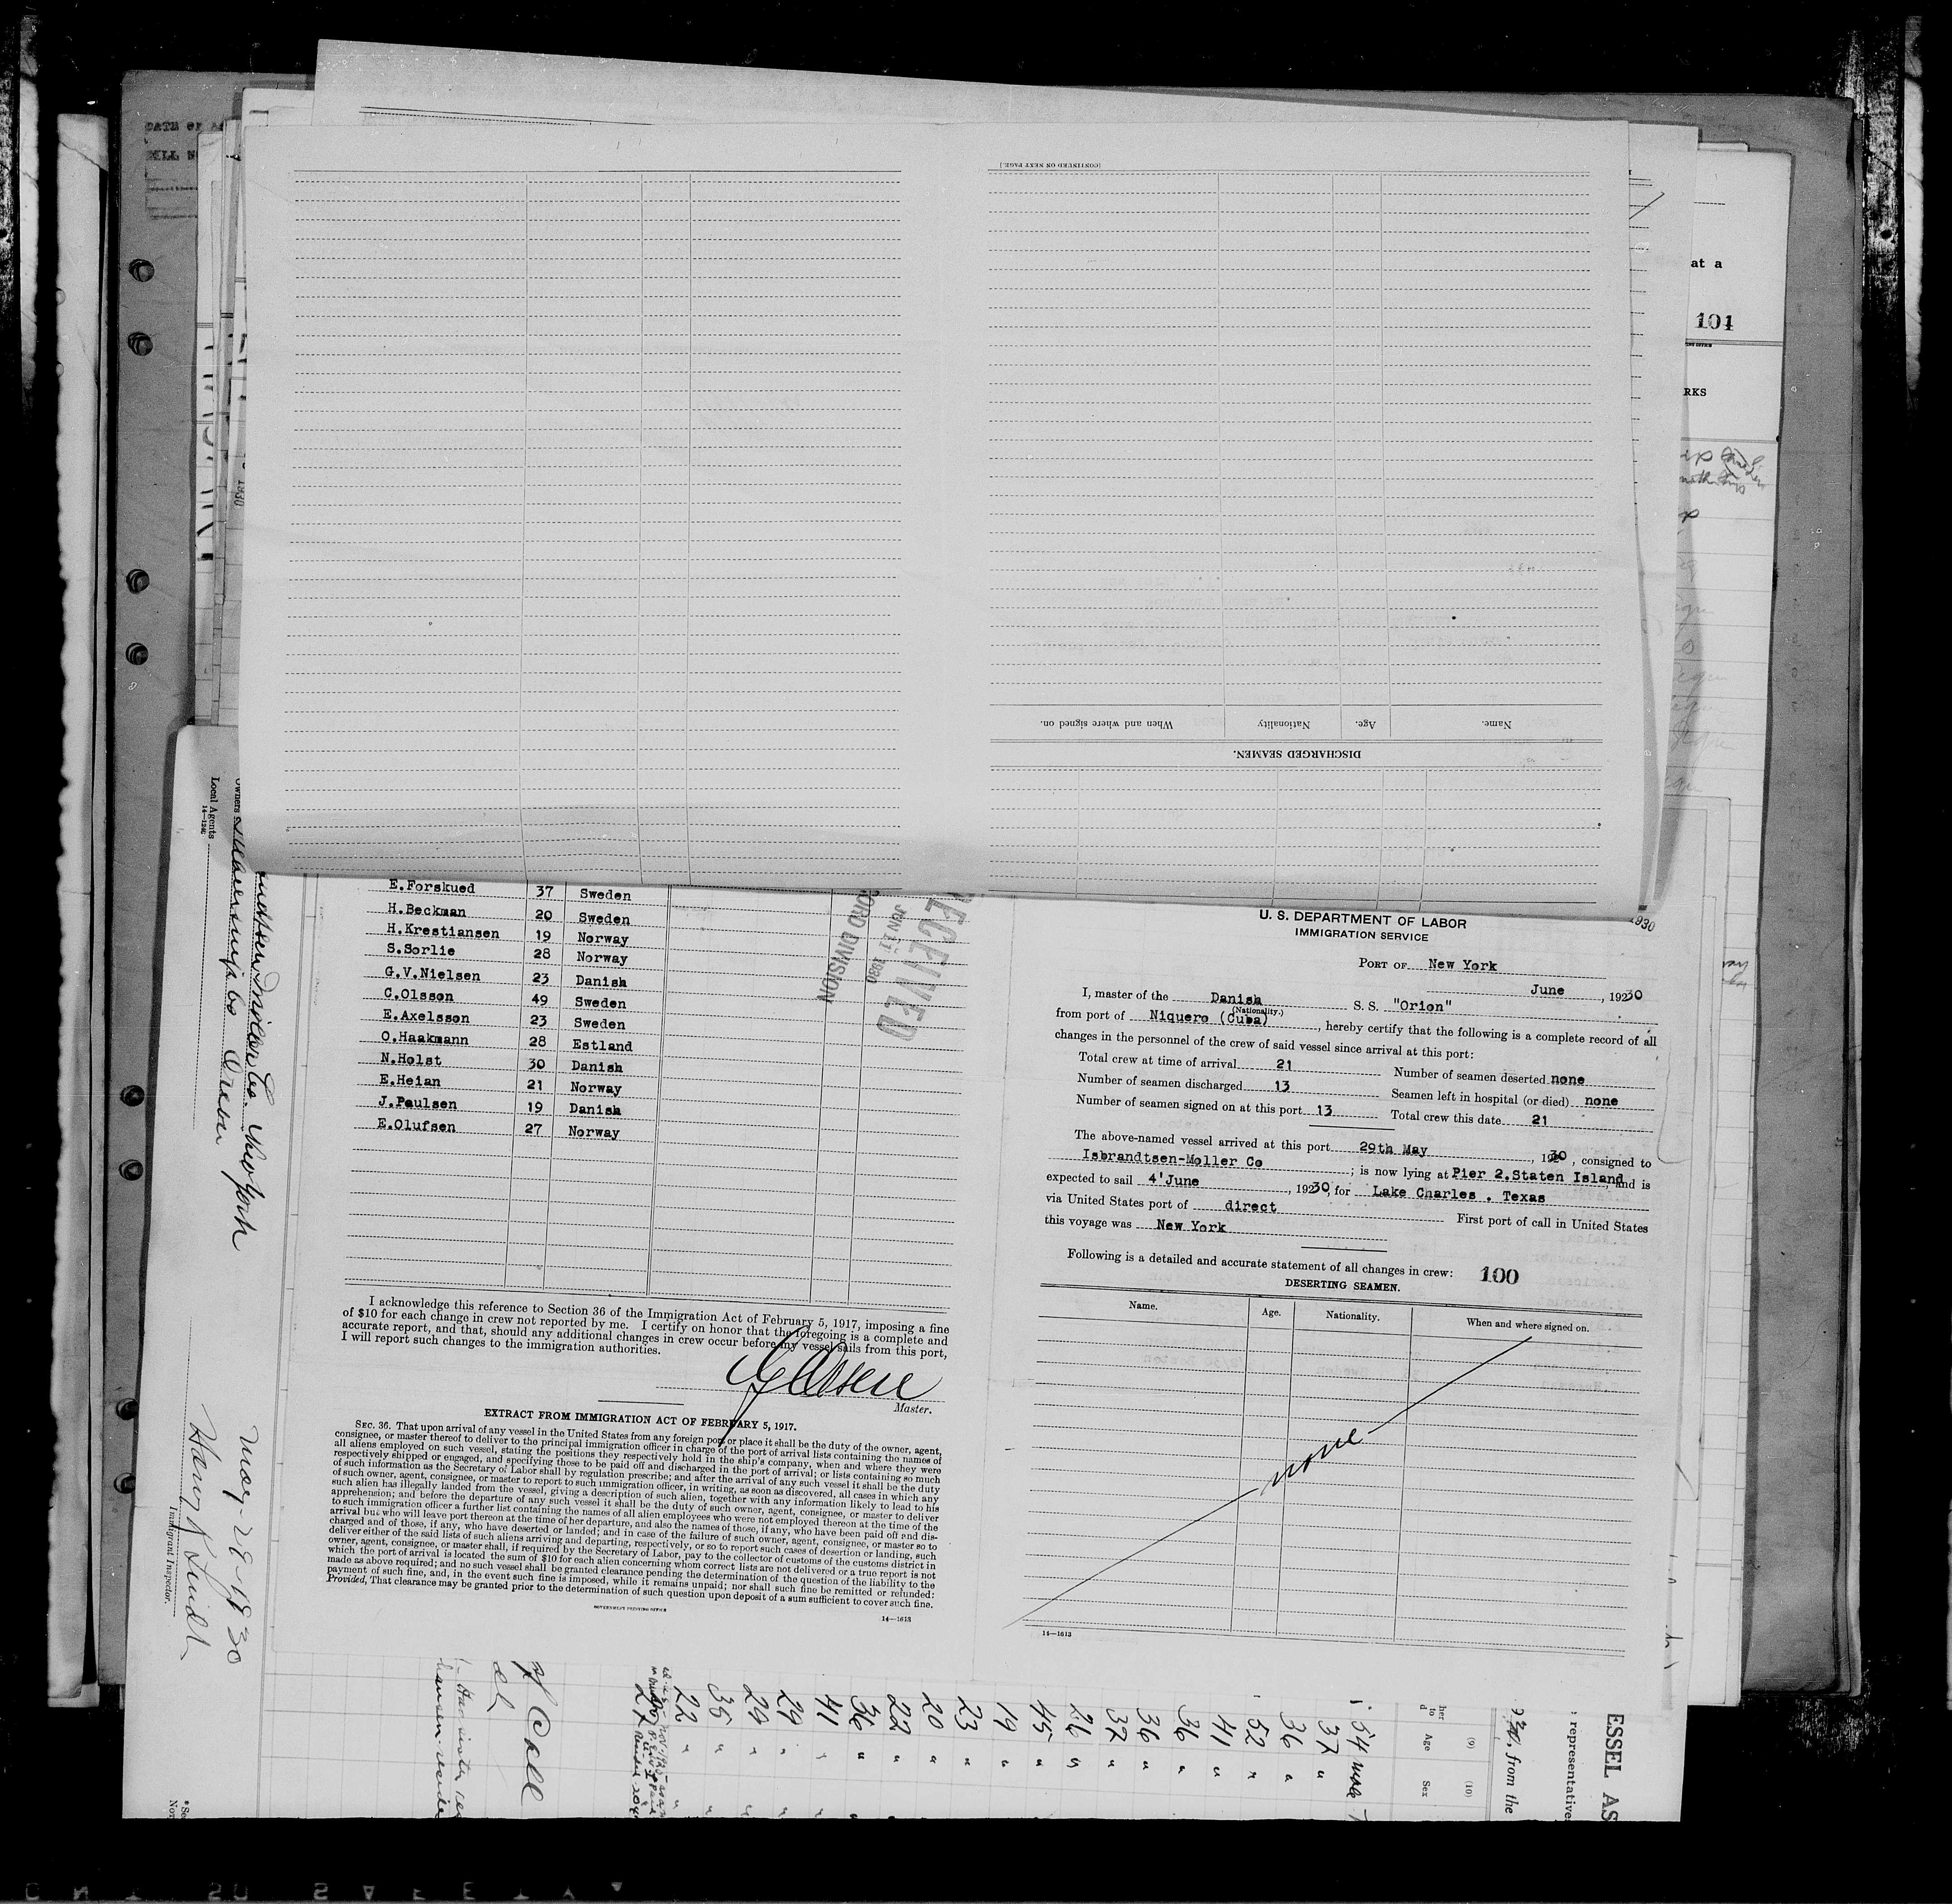 [CONTINUED ON NEXT PAGE.]
Name.
Age.
Nationality
When and where signed on.
DISCHARGED SEAMEN.
at a
101
RKS
1930
Local Agents
14—1240
Owners
May 28-1930
Immigrant Inspector.
E.Forskued 37 Sweden
H.Beckman 20 Sweden
H.Krestiansen 19 Norway
S.Sorlie 28 Norway
G.V.Nielsen 23 Danish
C.Olsson 49 Sweden
E.Axelsson 23 Sweden
O.Haakmann 28 Estland
N.Holst 30 Danish
E.Heian 21 Norway
J.Paulsen 19 Danish
E.Olufsen 27 Norway
RECEIVED
JUN 17 1930
ORD DIVISION
I acknowledge this reference to Section 36 of the Immigration Act of February 5, 1917, imposing a fine
of $10 for each change in crew not reported by me. I certify on honor that the foregoing is a complete and
accurate report, and that, should any additional changes in crew occur before my vessel sails from this port,
I will report such changes to the immigration authorities.
Master.
EXTRACT FROM IMMIGRATION ACT OF FEBRUARY 5, 1917.
SEC. 36. That upon arrival of any vessel in the United States from any foreign port or place it shall be the duty of the owner, agent,
consignee, or master thereof to deliver to the principal immigration officer in charge of the port of arrival lists containing the names of
all aliens employed on such vessel, stating the positions they respectively hold in the ship's company, when and where they were
respectively shipped or engaged, and specifying those to be paid off and discharged in the port of arrival; or lists containing so much
of such information as the Secretary of Labor shall by regulation prescribe; and after the arrival of any such vessel it shall be the duty
of such owner, agent, consignee, or master to report to such immigration officer, in writing, as soon as discovered, all cases in which any
such alien has illegally landed from the vessel, giving a description of such alien, together with any information likely to lead to his
apprehension; and before the departure of any such vessel it shall be the duty of such owner, agent, consignee, or master to deliver
to such immigration officer a further list containing the names of all alien employees who were not employed thereon at the time of the
arrival but who will leave port thereon at the time of her departure, and also the names of those, if any, who have been paid off and dis-
charged and of those, if any, who have deserted or landed; and in case of the failure of such owner, agent, consignee, or master so to
deliver either of the said lists of such aliens arriving and departing, respectively, or so to report such cases of desertion or landing, such
owner, agent, consignee, or master shall, if required by the Secretary of Labor, pay to the collector of customs of the customs district in
which the port of arrival is located the sum of $10 for each alien concerning whom correct lists are not delivered or a true report is not
made as above required; and no such vessel shall be granted clearance pending the determination of the question of the liability to the
payment of such fine, and, in the event such fine is imposed, while it remains unpaid; nor shall such fine be remitted or refunded:
Provided, That clearance may be granted prior to the determination of such question upon deposit of a sum sufficient to cover such fine.
GOVERNMENT PRINTING OFFICE
14—1613
1930
U. S. DEPARTMENT OF LABOR
IMMIGRATION SERVICE
PORT OF New York
June, 19230
I, master of the Danish S. S. "Orion"
(Nationality.)
from port of Niquero (Cuba), hereby certify that the following is a complete record of all
changes in the personnel of the crew of said vessel since arrival at this port:
Total crew at time of arrival 21 Number of seamen deserted none
Number of seamen discharged 13 Seamen left in hospital (or died) none
Number of seamen signed on at this port 13 Total crew this date 21
The above-named vessel arrived at this port 29th May, 19230, consigned to
Isbrandtsen-Moller Co; is now lying at Pier 2.Staten Island, and is
expected to sail 4'June, 19230, for Lake Charles . Texas
via United States port of direct First port of call in United States
this voyage was New York
Following is a detailed and accurate statement of all changes in crew: 100
DESERTING SEAMEN.
Name. Age. Nationality. When and where signed on.
none
14—1613
ESSEL AS
representative
from the
(9) (10)
Age Sex
54
37
36
52
41
36
36
37
26
45
19
23
20
22
36
41
29
29
35
22
27